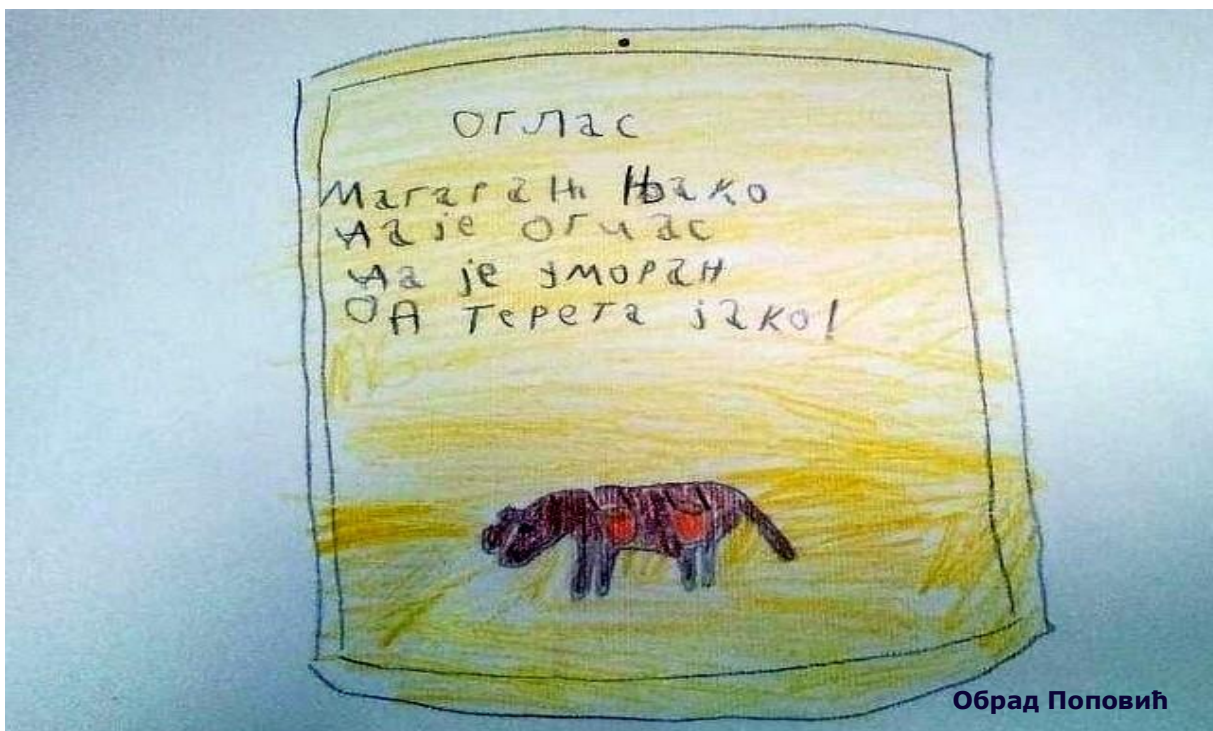 Оглас
Магарањ Њако
даје оглас
да је уморан
од терета јако!
Обрад Поповић